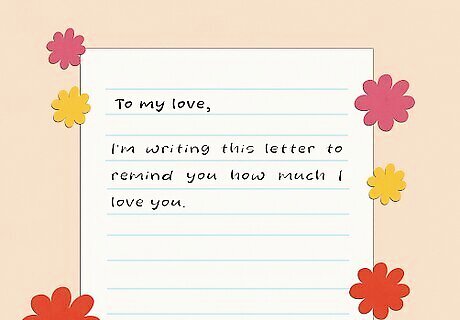 To my love,
I'm writing this letter to
remind you how much I
love you.